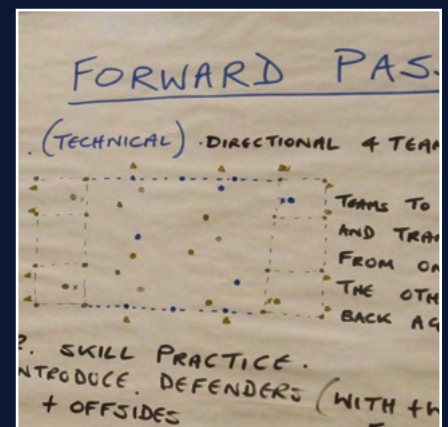 FORWARD PAS
(TECHNICAL) . DIRECTIONAL 4 TEAM
TEAMS TO
AND TRAN
FROM ON
THE OTH
BACK AG
2. SKILL PRACTICE.
NTRODUCE DEFENDERS (WITH
+ OFFSIDES